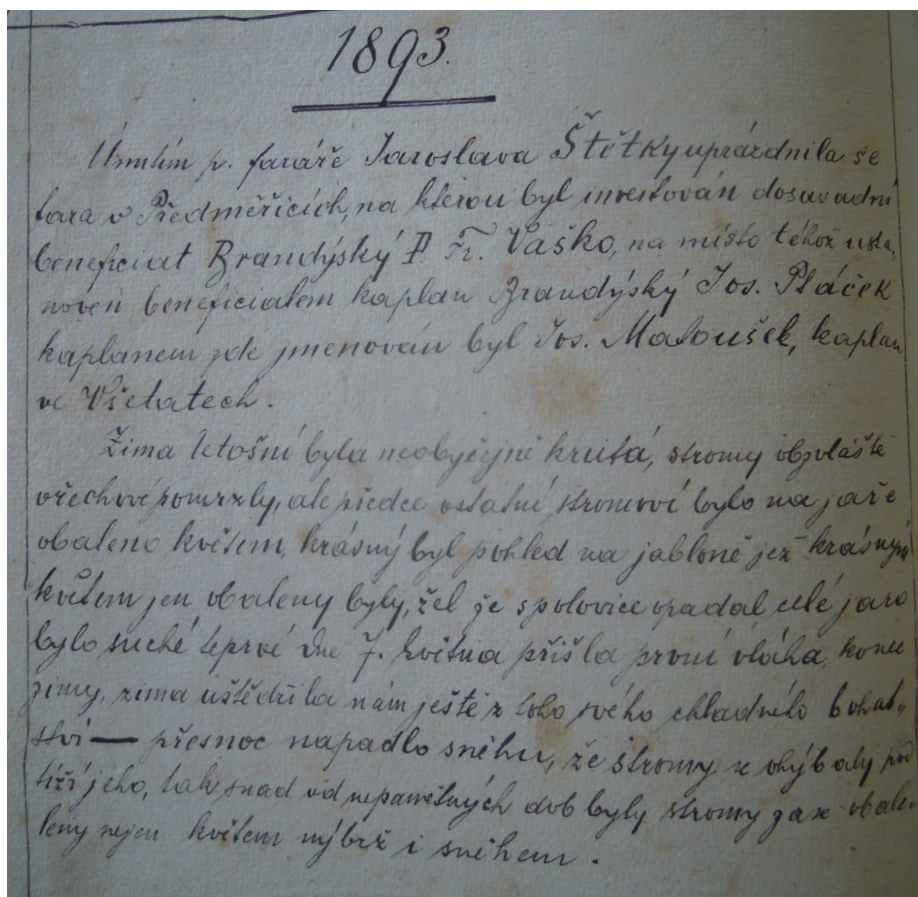 1893.
Úmrtím p. faráře Jaroslava Štětky uprázdnila se
fara v Předměřicích, na kterou byl investován dosavadní
beneficiat Brandýský P. Fr. Vaško, na místo téhož usta„
noven beneficiatem kaplan Brandýský Jos. Ptáček
kaplanem zde jmenován byl Jos. Matoušek, kaplan
ve Všetatech.
Zima letošní byla neobyčejně krutá, stromy obzvláště
ořechové pomrzly, ale předce ostatní stromoví bylo na jaře
obaleno květem, krásný byl pohled na jabloně jež krásným
květem jen obaleny byly, žel že spolovice opadal, celé jaro
bylo suché teprvé dne 7. května přišla první vláha, konec
zimy, zima uštědřila nám ještě z toho svého chladného bohat„
ství — přesnoc napadlo sněhu, že stromy se ohýbaly pod
tíží jeho, tak snad od nepamětných dob byly stromy zase obale„
leny nejen květem nýbrž i sněhem.